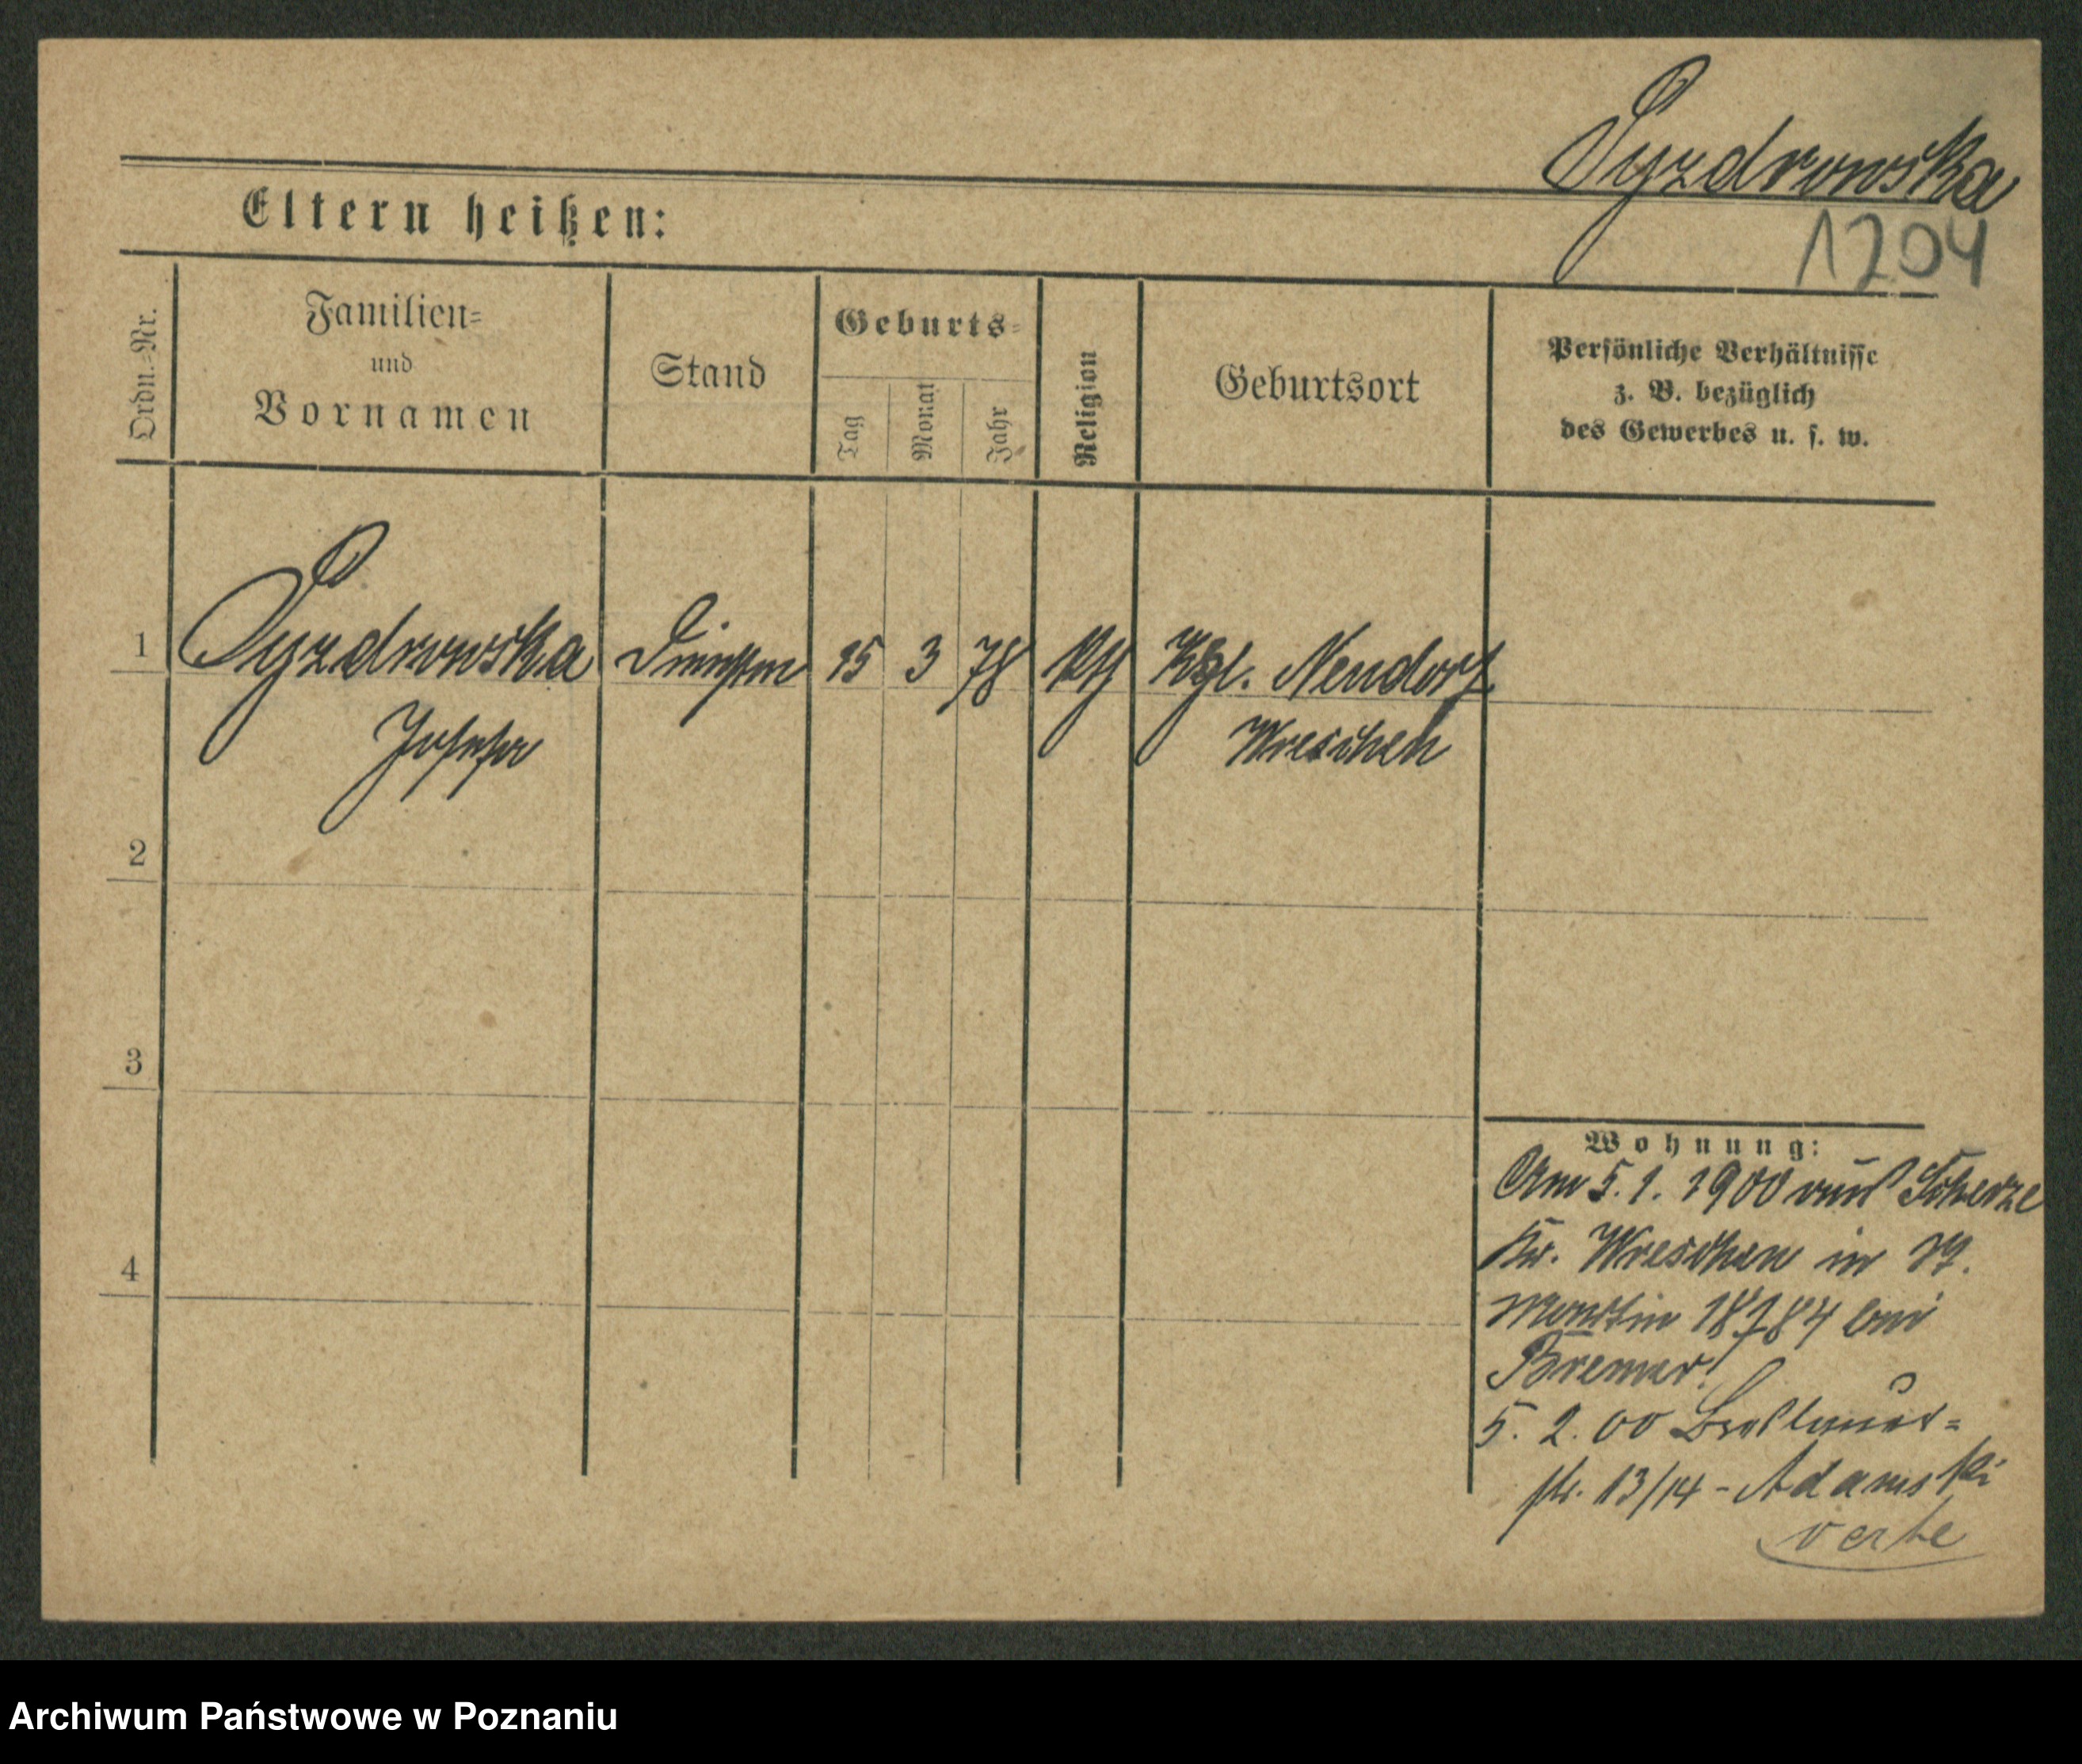 Pyzdrowska
1204
Eltern heißen:
Ordn.-Nr.
Familien-
und
Vornamen
Stand
Geburts-
Tag
Monat
Jahr
Religion
Geburtsort
Persönliche Verhältnisse
z. B. bezüglich
des Gewerbes u. s. w.
1
Pyzdrowska
15
3
78
Kgl. Neudorf
Josefa
Wreschen
2
3
4
Wohnung:
Am 5. 1. 1900 aus
Kr. Wreschen in
Martin
Bremer.
5. 2. 00 Breslauer-
str. 13/14 - Adamski
verte
Archiwum Państwowe w Poznaniu